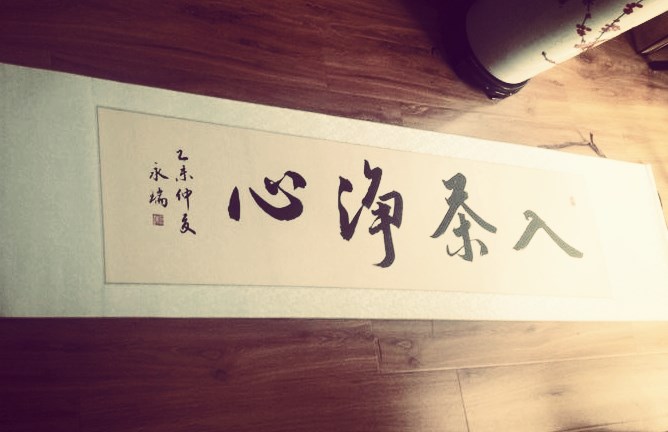 入茶净心
乙未仲夏
永瑞